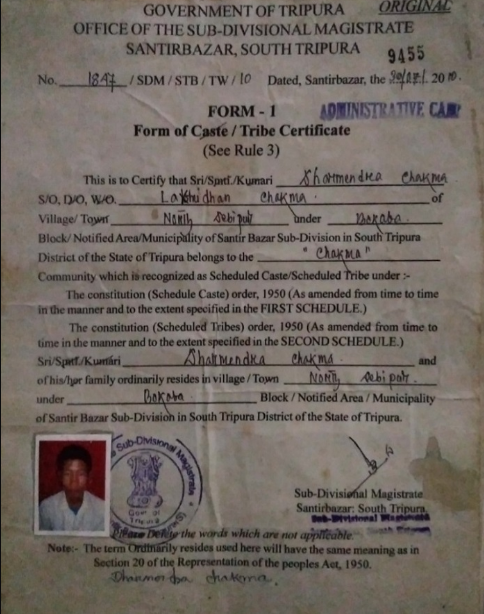 ORIGINAL
GOVERNMENT OF TRIPURA
OFFICE OF THE SUB-DIVISIONAL MAGISTRATE
SANTIRBAZAR, SOUTH TRIPURA
9455
No. 1847 / SDM / STB / TW / 10 Dated, Santirbazar, the 2010.
FORM - 1
ADMINISTRATIVE CAMP
Form of Caste / Tribe Certificate
(See Rule 3)
This is to Certify that Sri/Smt./Kumari Dharmendra Chakma
S/O, D/O, W/O. Chakma of
Village/ Town North Debipur under Bokafa
Block/ Notified Area/Municipality of Santir Bazar Sub-Division in South Tripura
District of the State of Tripura belongs to the "Chakma"
Community which is recognized as Scheduled Caste/Scheduled Tribe under :-
The constitution (Schedule Caste) order, 1950 (As amended from time to time
in the manner and to the extent specified in the FIRST SCHEDULE.)
The constitution (Scheduled Tribes) order, 1950 (As amended from time to
time in the manner and to the extent specified in the SECOND SCHEDULE.)
Sri/Smt./Kumari Dharmendra Chakma and
of his/her family ordinarily resides in village / Town North Debipur
under Bokafa Block / Notified Area / Municipality
of Santir Bazar Sub-Division in South Tripura District of the State of Tripura.
Sub-Divisional Magistrate
Govt. of
Tripura
Sub-Divisional Magistrate
Santirbazar: South Tripura.
Sub-Divisional Magistrate
Please Delete the words which are not applicable.
Note:- The term Ordinarily resides used here will have the same meaning as in
Section 20 of the Representation of the peoples Act, 1950.
Chakma